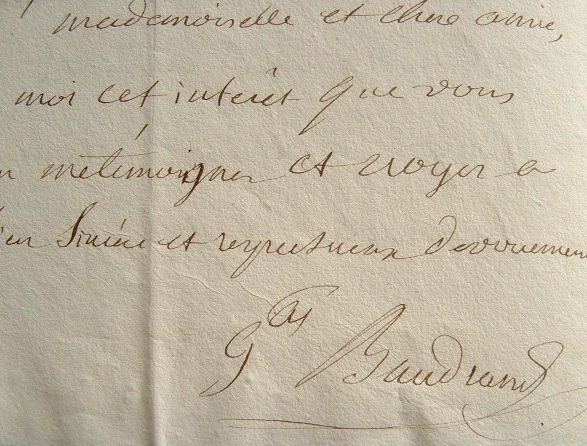 mademoiselle et chere amie,
moi cet intérêt que vous
métémoignez et croyez a
sincére et respectueux devouement
Gal Baudrand